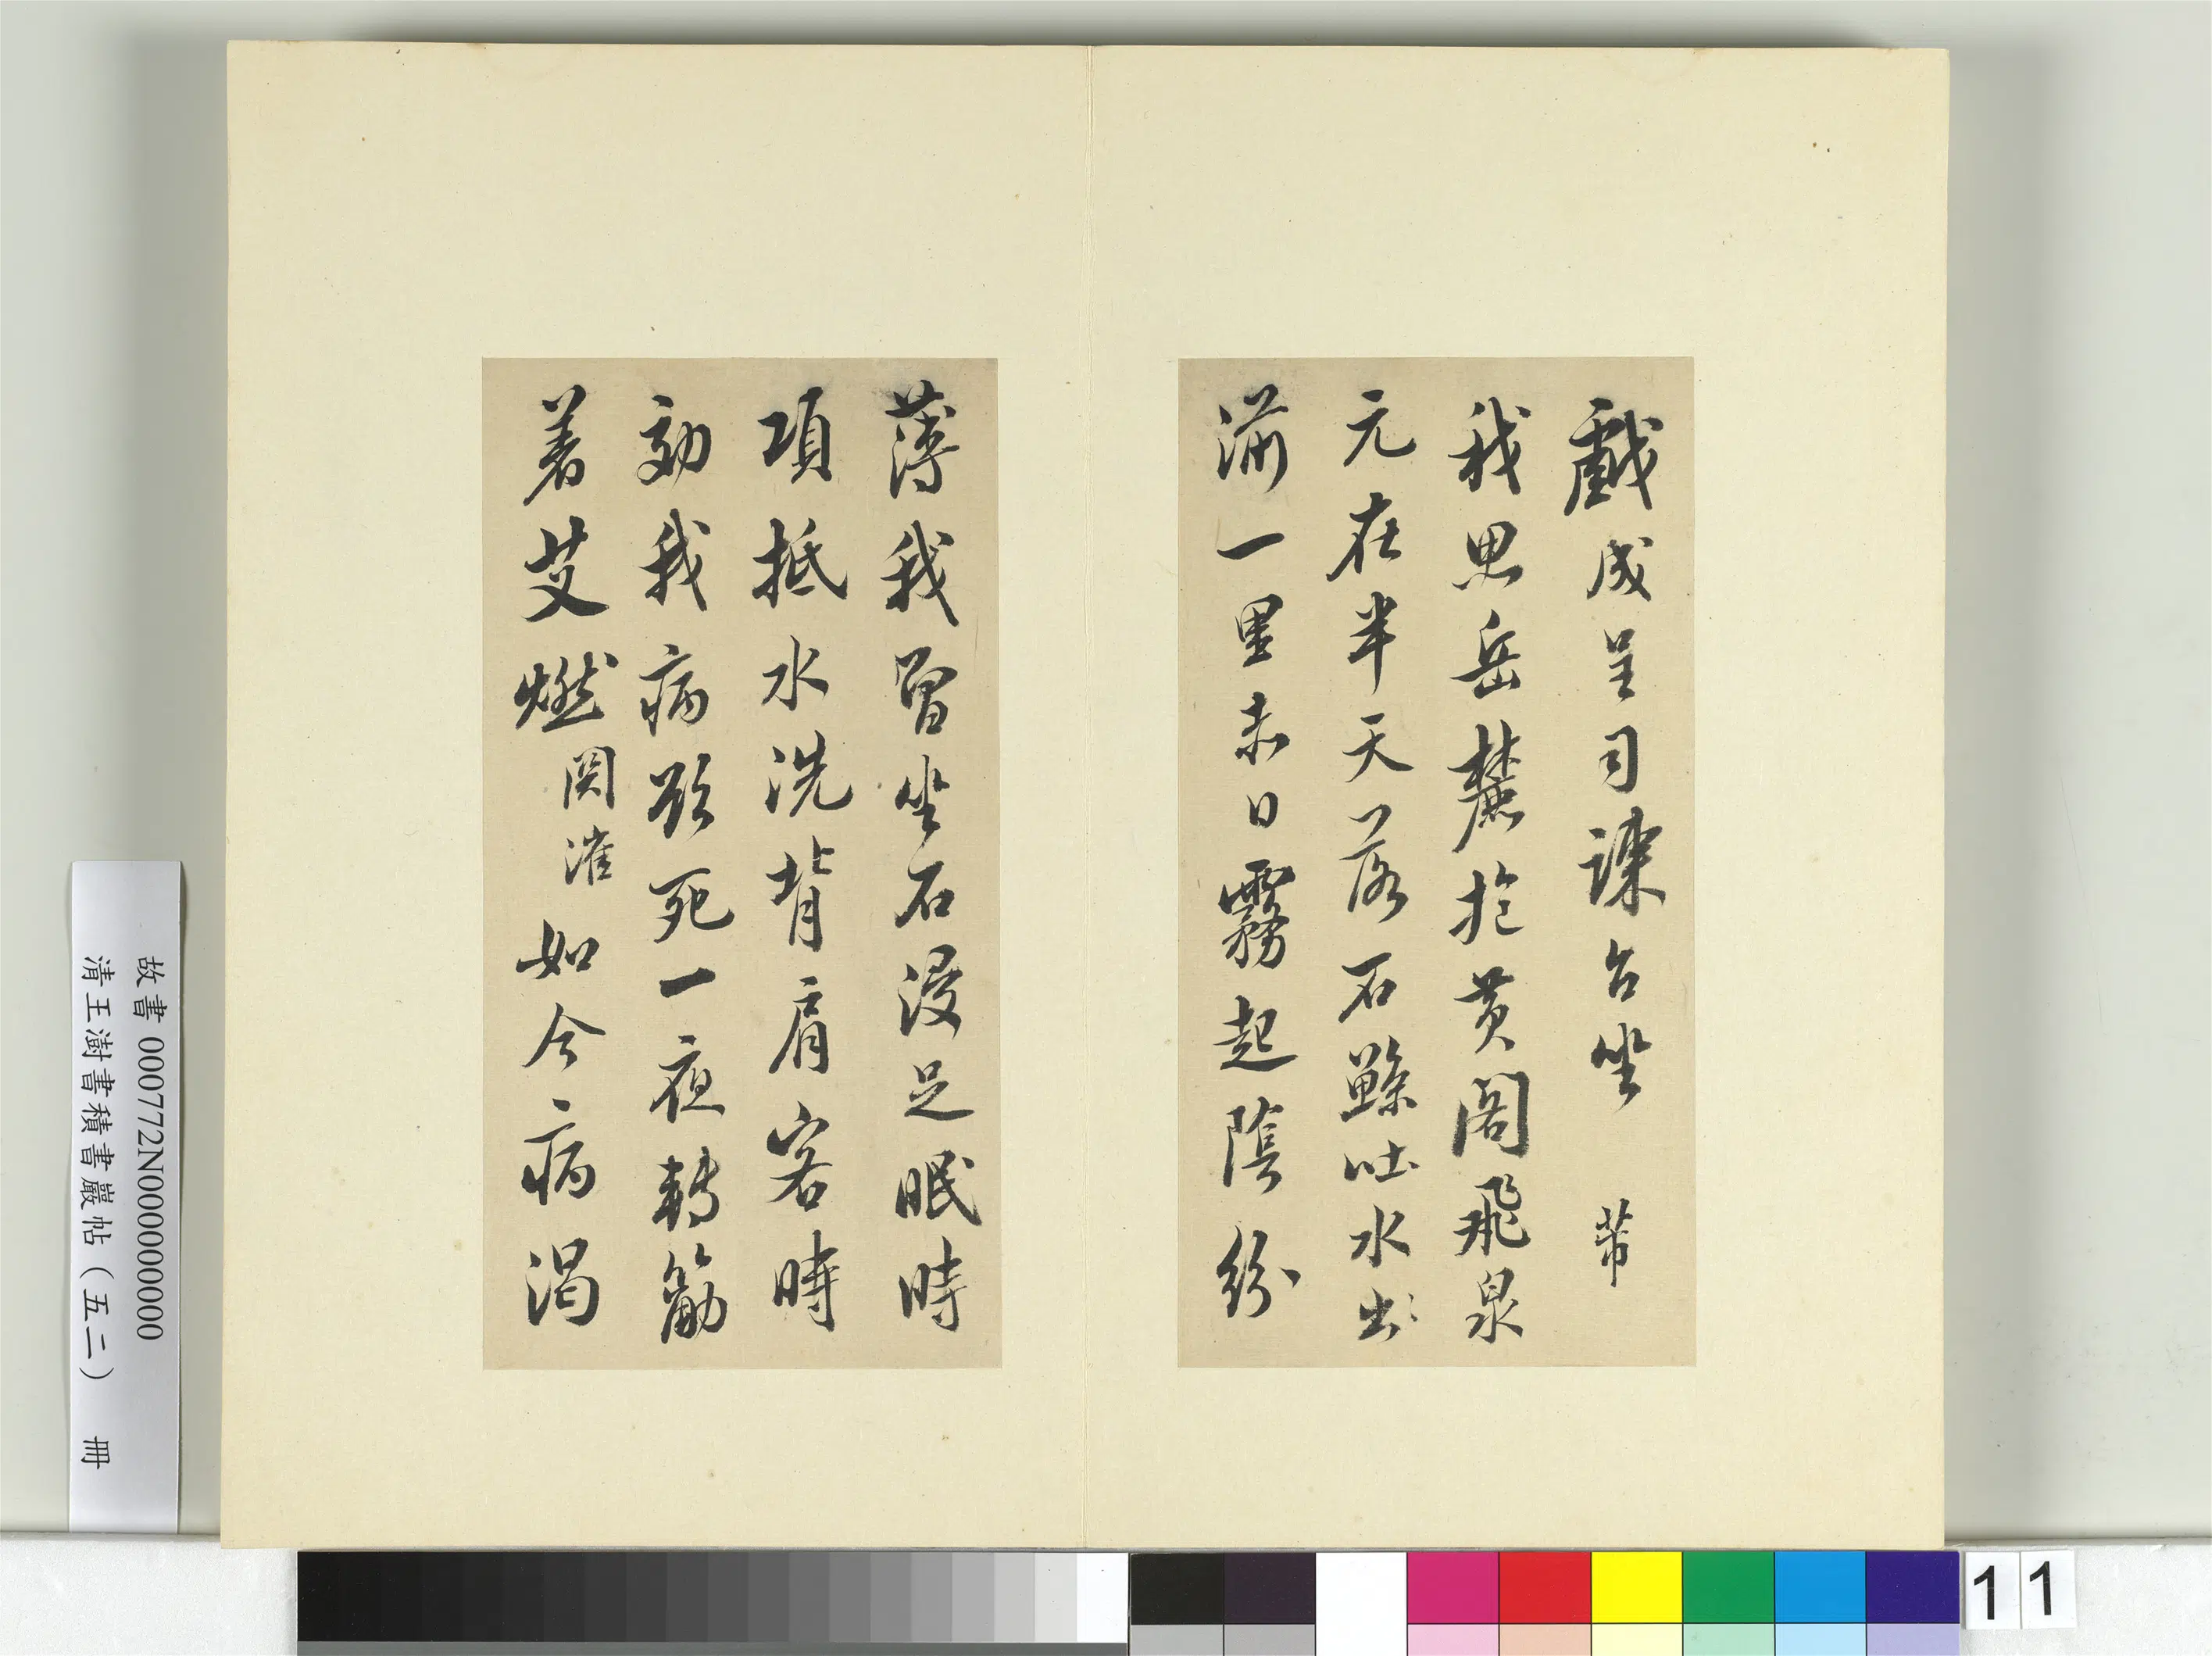 戲成呈司諫台坐　芾
我思岳麓抱黃閣飛泉
元在半天落石鯨吐水出
湔一里赤日霧起陰紛
薄我曾坐石浸足眠時
項抵水洗背肩客時
効我病欲死一夜轉筋
著艾燃関灌如今病渴
故書 000772N000000000
清王澍書積書巖帖(五二) 冊
11